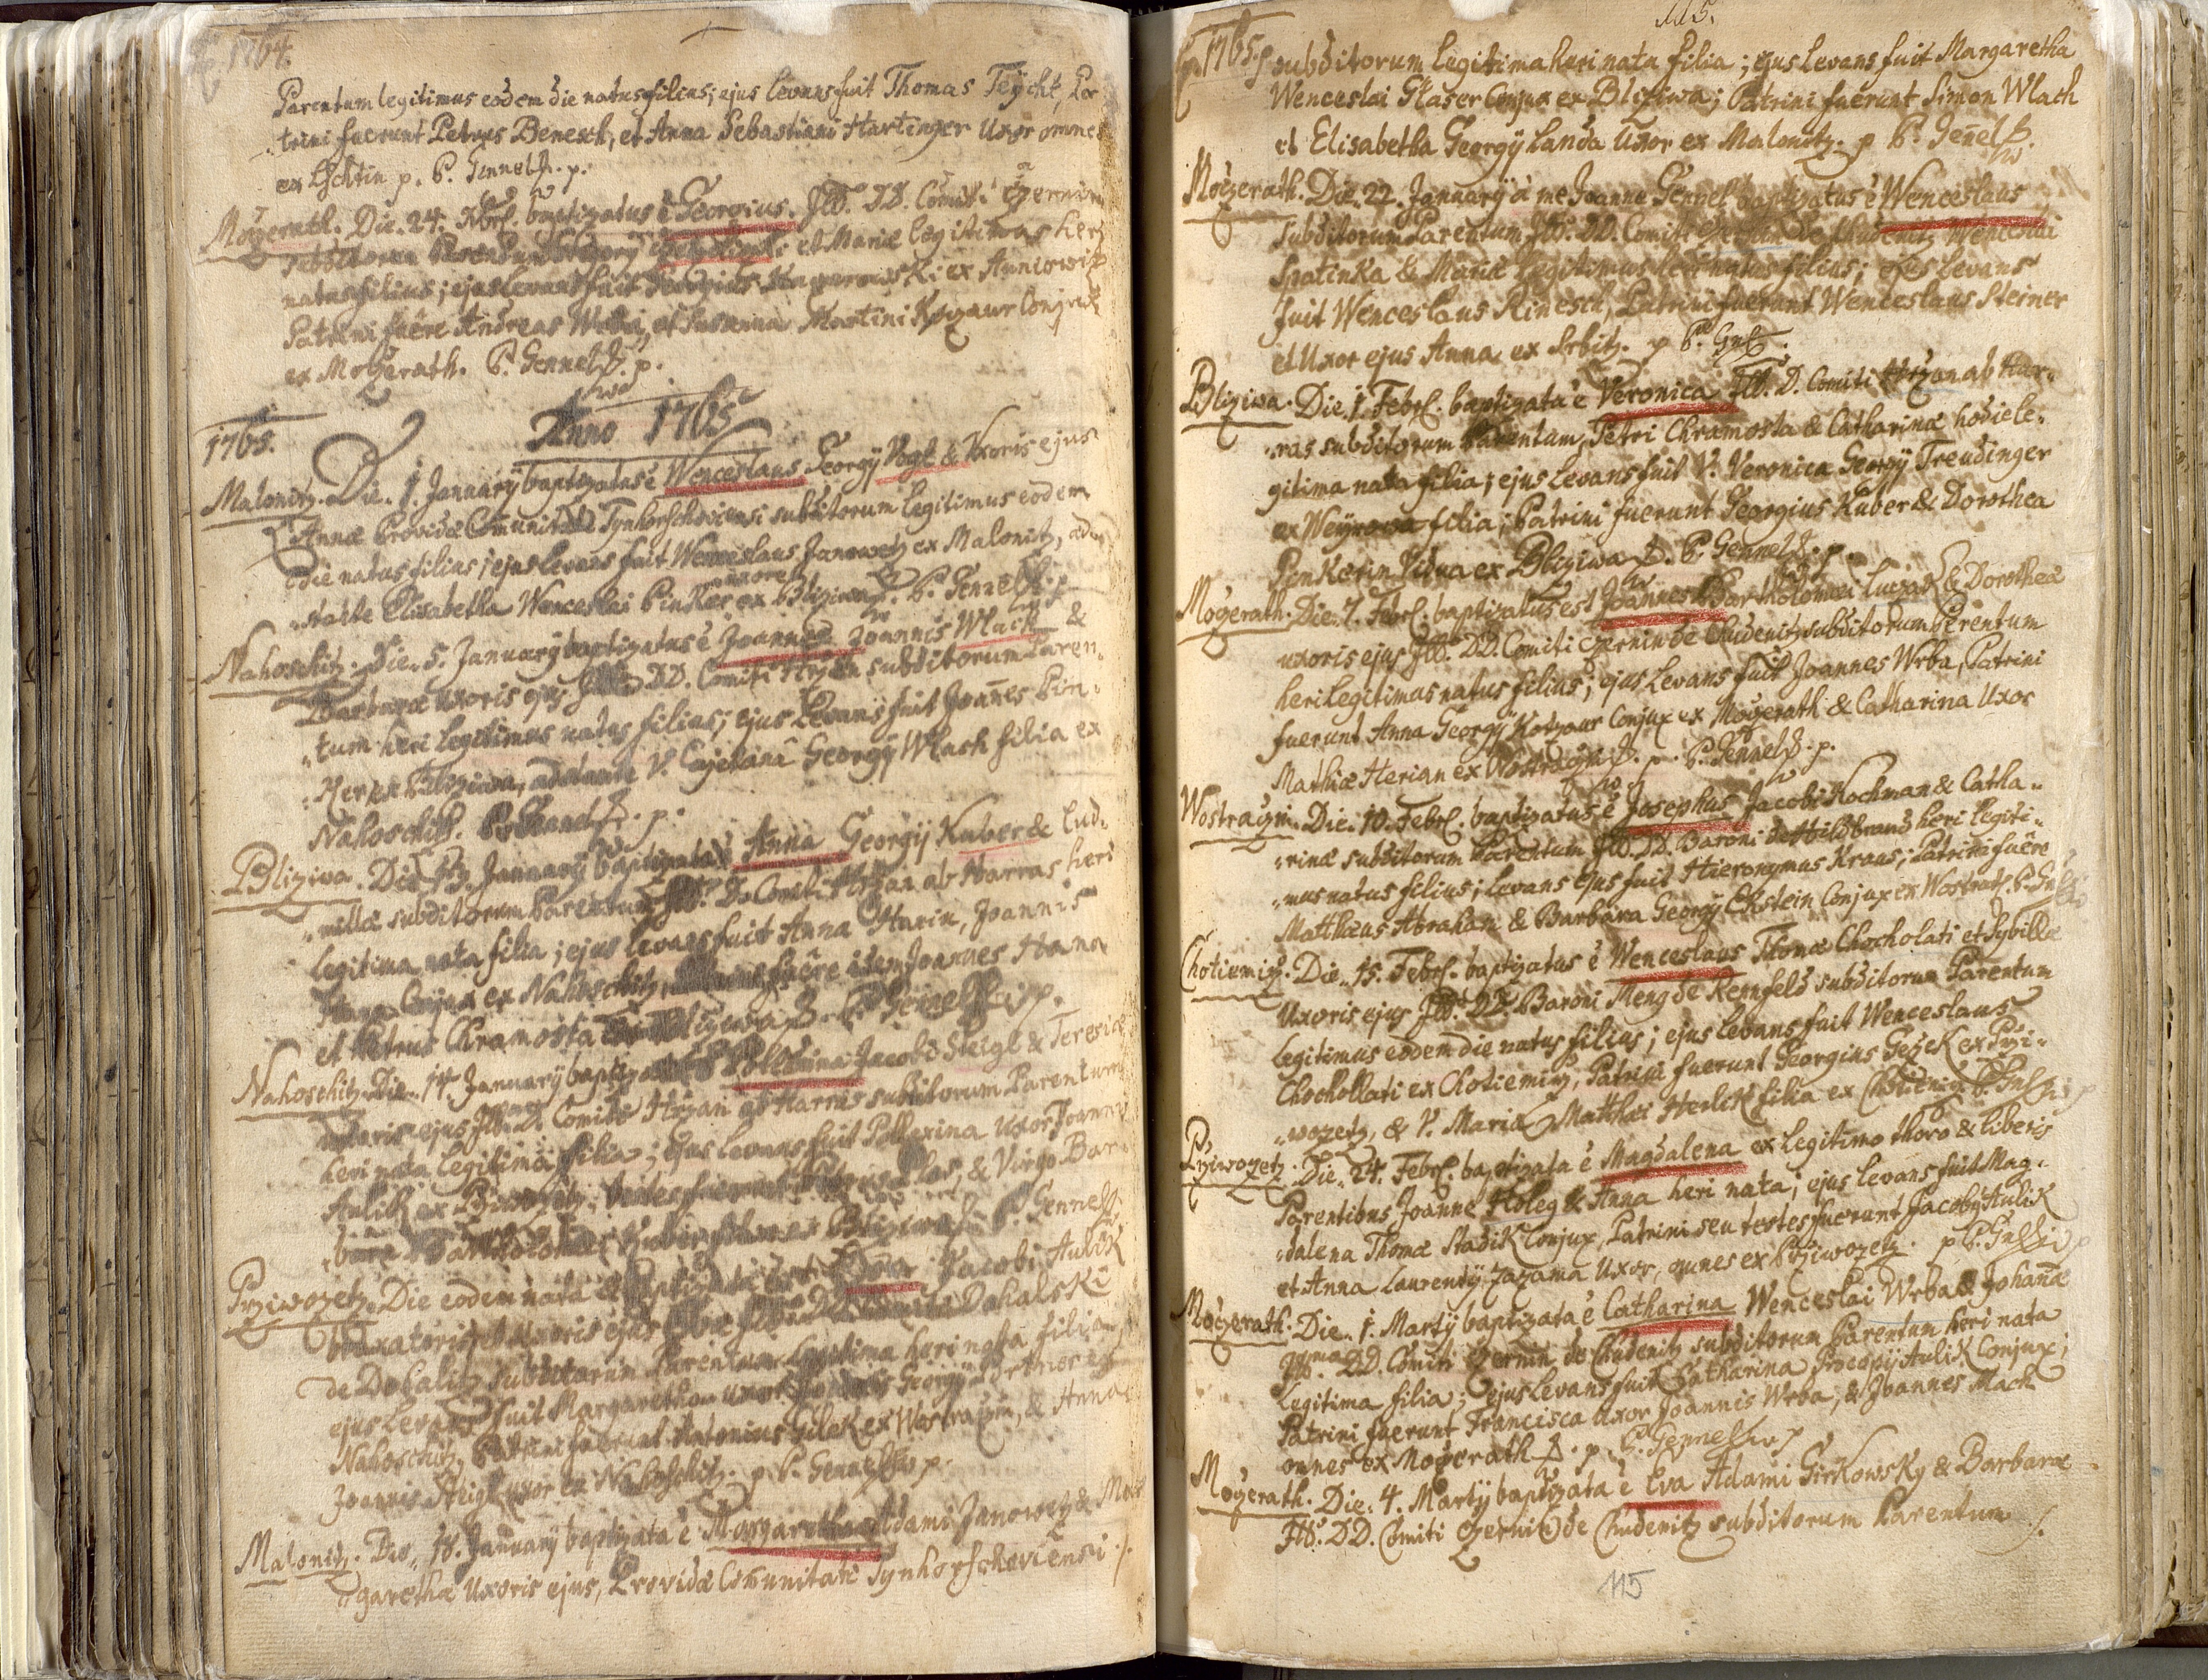 1764.
Parentum legitimus eodem die natus filius; ejus levans fuit Thomas Teycht, Pa
trini fuerunt Petrus Benesch, et Anna Sebastiani Hartinger Uxor omnes
ex Lschtin p. P. Gennel p.
Mogerath. Die 24. Xbrl. baptizatus e Georgius. Illmo DD. Comiti Czernin
subditorum Parentum et Mariæ legitimus heri
natus filius; ejus levans fuit Georgius ex
Patrini fuêre Andreas Wrba, et Susanna Martini Kozaur Conjux
ex Mogerath. P. Gennel p.
Anno 1765
1765.
Malonitz. Die 1. Januarÿ baptizatus e Wenceslaus Georgÿ Vogt & Uxoris ejus
Annæ Providæ Comunitati subditorum legitimus eodem
die natus filius; ejus levans fuit Wenceslaus Janowetz ex Malonitz, ad
stante Elisabetha Wenceslai Pinker uxore ex Bliziwa. P. Gennel p.
Nahoschitz. Die 5. Januarÿ baptizatus e Joannes Joannis Wlach &
Barbaræ Uxoris ejus DD. Comiti Hrzan subditorum Paren
tum heri legitimus natus filius; ejus levans fuit Joannes Pin
ker ex Bliziwa, adstante V. Cajetana Georgÿ Wlach filia ex
Nahoschitz. P. Gennel p.
Bliziwa. Die 13. Januarÿ baptizata e Anna Georgÿ Kuber & Lud
millæ subditorum Parentum Illmo D. Comiti Hrzan ab Harras heri
legitima nata filia; ejus levans fuit Anna Joannis
Conjux ex Nahoschitz, fuêre idem Joannes
et Petrus Chramosta ex Bliziwa P. Gennel p.
Nahoschitz. Die 14. Januarÿ baptizata Polexina Jacobi Steigl & Teresiæ
Uxoris ejus Comiti Hrzan ab Harras subditorum Parentum
heri nata legitima filia; ejus levans fuit Pollexina Uxor Joannis
Aulik ex Przivozetz, testes fuerunt & Virgo Bar
bara ex Bliziwa P. Gennel
Przivozetz. Die eodem nata et baptizata Jacobi Aulik
Uxoris ejus DD. Dohalski
de Dohalitz subditorum Parentum legitima heri nata filia
ejus levans fuit Margaretha uxor Georgÿ
Nahoschitz, Patrini fuerunt Antonius ex Wostraczin, & Anna
Joannis Steigl uxor ex Nahoschitz. p. P. Gennel p.
Malonitz. Die 18. Januarÿ baptizata e Margaretha Adami Janowetz & Mar
garethæ Uxoris ejus, Providæ Comunitati ./.
115.
1765. subditorum legitima heri nata filia; ejus levans fuit Margaretha
Wenceslai Glaser Conjux ex Bliziwa; Patrini fuerunt Simon Wlach
et Elisabetha Georgÿ Landa Uxor ex Malonitz. p P. Gennel
Mogerath. Die 22. Januarÿ a me Joanne Gennel baptizatus e Wenceslaus
subditorum Parentum Illmo DD. Comiti Czernin de Chudenitz Wenceslai
Spatinka & Mariæ legitimus heri natus filius; ejus levans
fuit Wenceslaus Rinesch, Patrini fuerunt Wenceslaus Steiner
et Uxor ejus Anna ex Srbitz. p P. Gnl.
Bliziwa. Die 1. Febrl. baptizata e Veronica Illmo D. Comiti Hrzan ab Har
ras subditorum Parentum Petri Chramosta & Catharinæ hodie le
gitima nata filia; ejus levans fuit V. Veronica Georgÿ Treudinger
ex filia; Patrini fuerunt Georgius Kuber & Dorothea
Penkerin Vidua ex Bliziwa P. Gennel p.
Mogerath. Die 7. Febrl. baptizatus est Joannes Bartholomæi Luczak & Dorotheæ
uxoris ejus Illmo DD. Comiti Czernin de Chudenitz subditorum Parentum
heri legitimus natus filius; ejus levans fuit Joannes Wrba, Patrini
fuerunt Anna Georgÿ Kotzaur Conjux ex Mogerath & Catharina Uxor
Mathiæ Herian ex Wostraczin p. P. Gennel p.
Wostraczin. Die 10. Febrl. baptizatus e Josephus Jacobi Kochman & Catha
rinæ subditorum Parentum Illmo DD. Baroni de Hildbrand heri legiti
mus natus filius; levans ejus fuit Hieronymus Kraus; Patrini fuêre
Matthæus Abraham & Barbara Georgÿ Ekstein Conjux ex Wostracz. P. Gnl.
Chotiemitz. Die 15. Febrl. baptizatus e Wenceslaus Thomæ Chocholati et Sybillæ
Uxoris ejus Illmo DD. Baroni Meng de Renfeld subditorum Parentum
legitimus eodem die natus filius; ejus levans fuit Wenceslaus
Chochollati ex Chotiemitz, Patrini fuerunt Georgius Gezek ex Przi
wozetz, & V. Maria Matthæi Herlik filia ex Chotiemitz P. Gnl p
Przivozetz. Die 24. Febrl. baptizata e Magdalena ex legitimo thoro & liberis
Parentibus Joanne Holeg & Anna heri nata; ejus levans fuit Mag
dalena Thomæ Stadik Conjux, Patrini seu testes fuerunt Jacoby Aulik
et Anna Laurentÿ Zazama Uxor, omnes ex Przivozetz. p P. Gnl p
Mogerath. Die 1. Martÿ baptizata e Catharina Wenceslai Wrba & Johanæ
Illmo DD. Comiti Czernin de Chudenitz subditorum Parentum heri nata
legitima filia; ejus levans fuit Catharina Procopÿ Aulik Conjux;
Patrini fuerunt Francisca Uxor Joannis Wrba, & Joannes Mach
omnes ex Mogerath p. P. Gennel p
Mogerath. Die 4. Martÿ baptizata e Eva Adami Girkowsky & Barbaræ
Illmo DD. Comiti Czernin de Chudenitz subditorum Parentum ./.
115